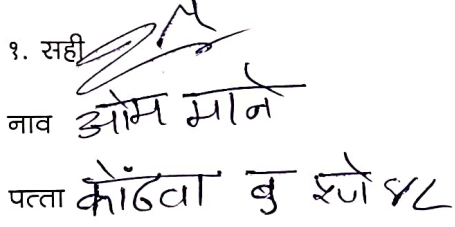 १. सही
नाव ओम माने
पत्ता कोंढवा बु पुणे ४८